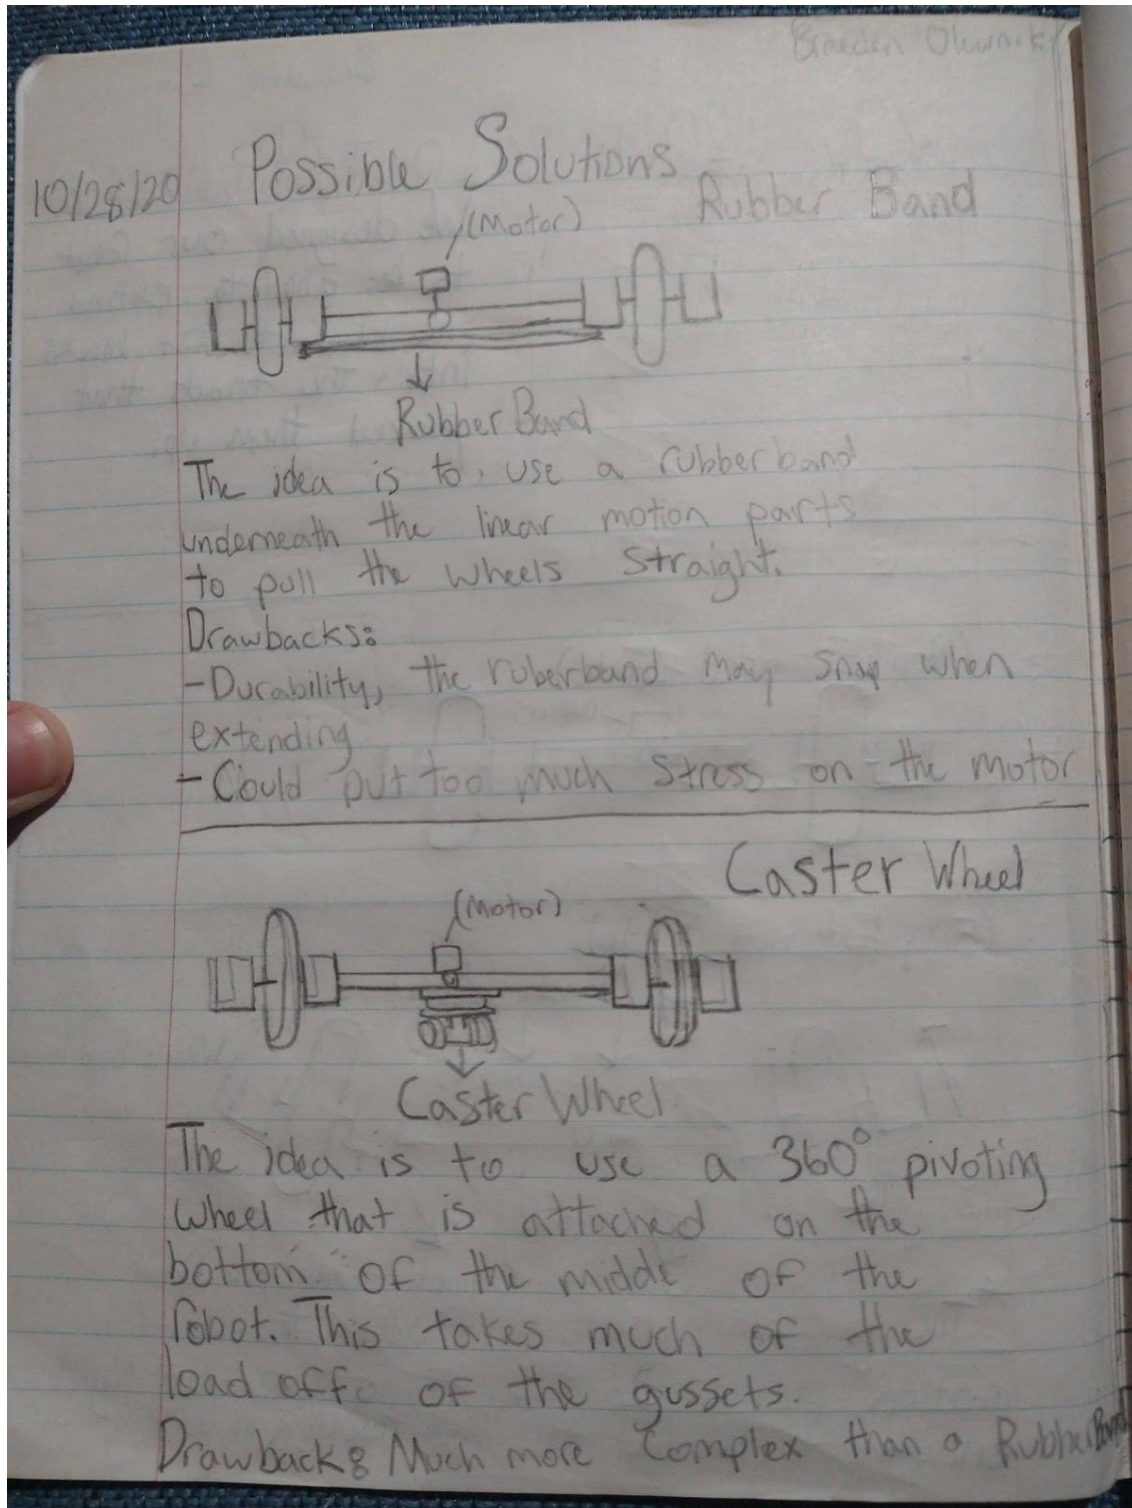 Braeden
10/28/20
Possible Solutions
Rubber Band
(Motor)
Rubber Band
The idea is to use a rubberband
underneath the linear motion parts
to pull the wheels straight.
Drawbacks:
-Durability, the ruberband may snap when
extending
- Could put too much stress on the motor
Caster Wheel
(Motor)
Caster Wheel
The idea is to use a 360° pivoting
wheel that is attached on the
bottom of the middle of the
robot. This takes much of the
load off of the gussets.
Drawback: Much more complex than a Rubber Band